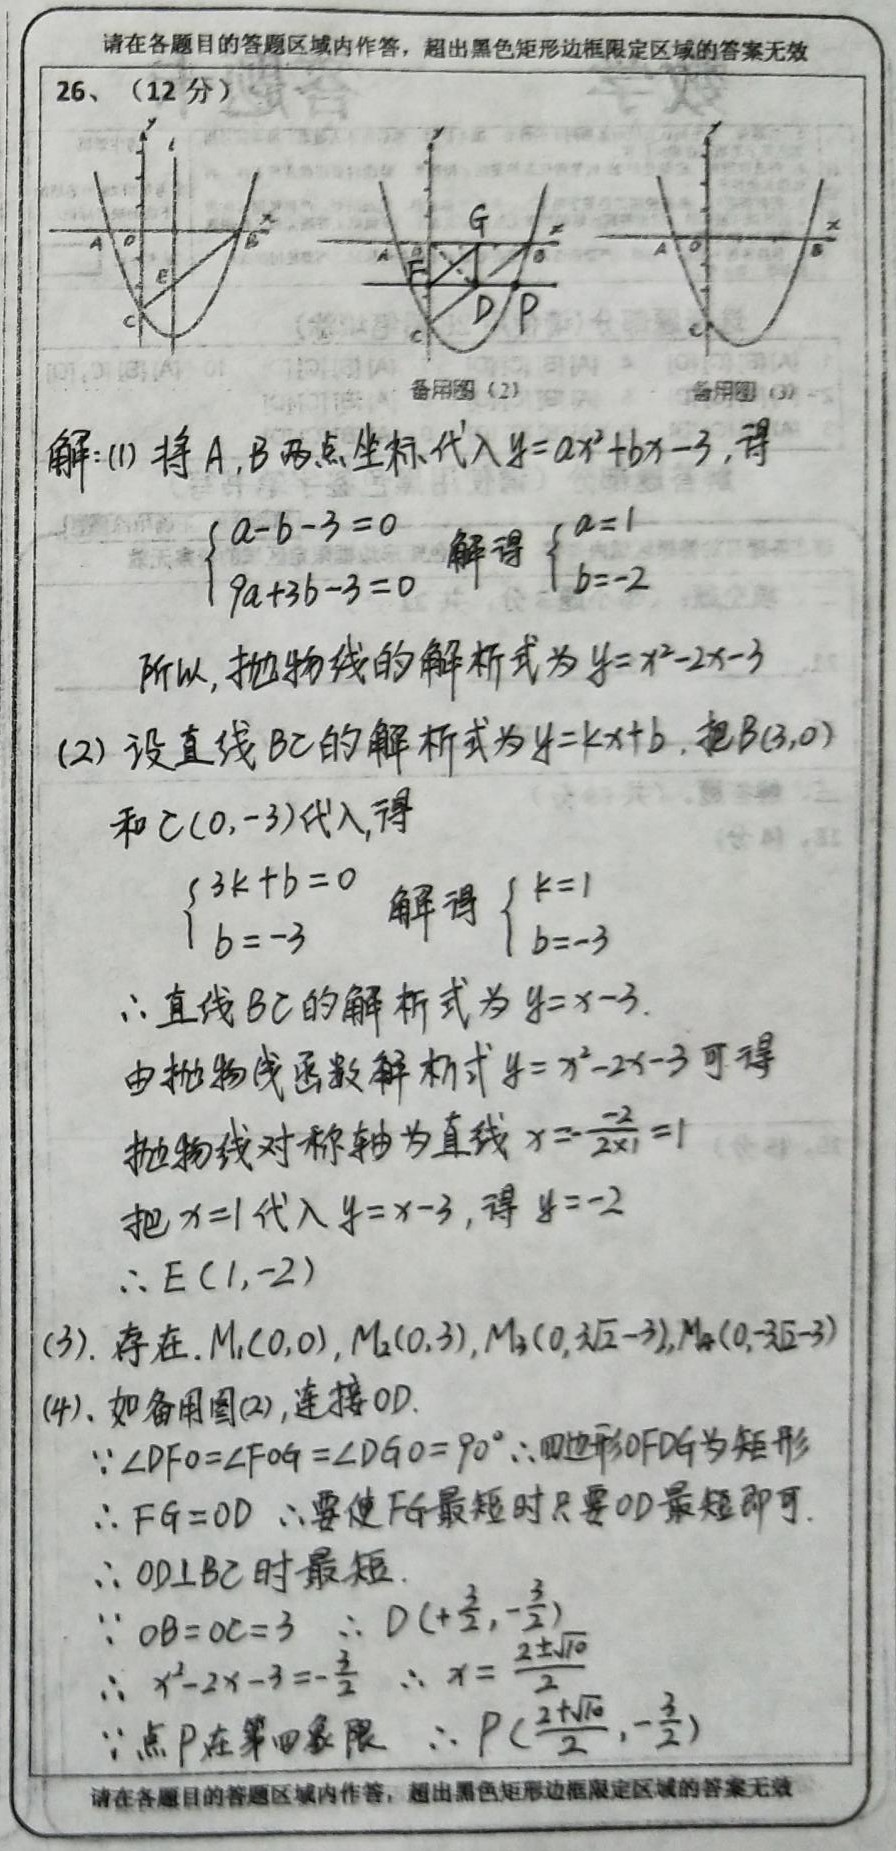 请在各题目的答题区域内作答，超出黑色矩形边框限定区域的答案无效
26、（12 分）
y l x A O B E C
y G x A O B F D P C
y x A O B C
备用图（2） 备用图（3）
解:(1) 将 A,B 两点坐标代入 y=ax²+bx-3,得
{ a-b-3=0 9a+3b-3=0 解得 { a=1 b=-2
所以,抛物线的解析式为 y=x²-2x-3
(2) 设直线BC的解析式为y=kx+b,把B(3,0)
和C(0,-3)代入,得
{ 3k+b=0 b=-3 解得 { k=1 b=-3
∴直线BC的解析式为 y=x-3.
由抛物线函数解析式 y=x²-2x-3 可得
抛物线对称轴为直线 x=-\frac{-2}{2×1}=1
把 x=1代入 y=x-3,得 y=-2
∴ E(1,-2)
(3). 存在. M₁(0,0), M₂(0,3), M₃(0,3√2-3), M₄(0,-3√2-3)
(4)、如备用图(2),连接OD.
∵∠DFO=∠FOG=∠DGO=90° ∴四边形OFDG为矩形
∴ FG=OD ∴要使FG最短时只要OD最短即可.
∴ OD⊥BC 时最短.
∵ OB=OC=3 ∴ D(+\frac{3}{2},-\frac{3}{2})
∴ x²-2x-3=-\frac{3}{2} ∴ x=\frac{2±√10}{2}
∵点P在第四象限 ∴ P(\frac{2+√10}{2},-\frac{3}{2})
请在各题目的答题区域内作答，超出黑色矩形边框限定区域的答案无效